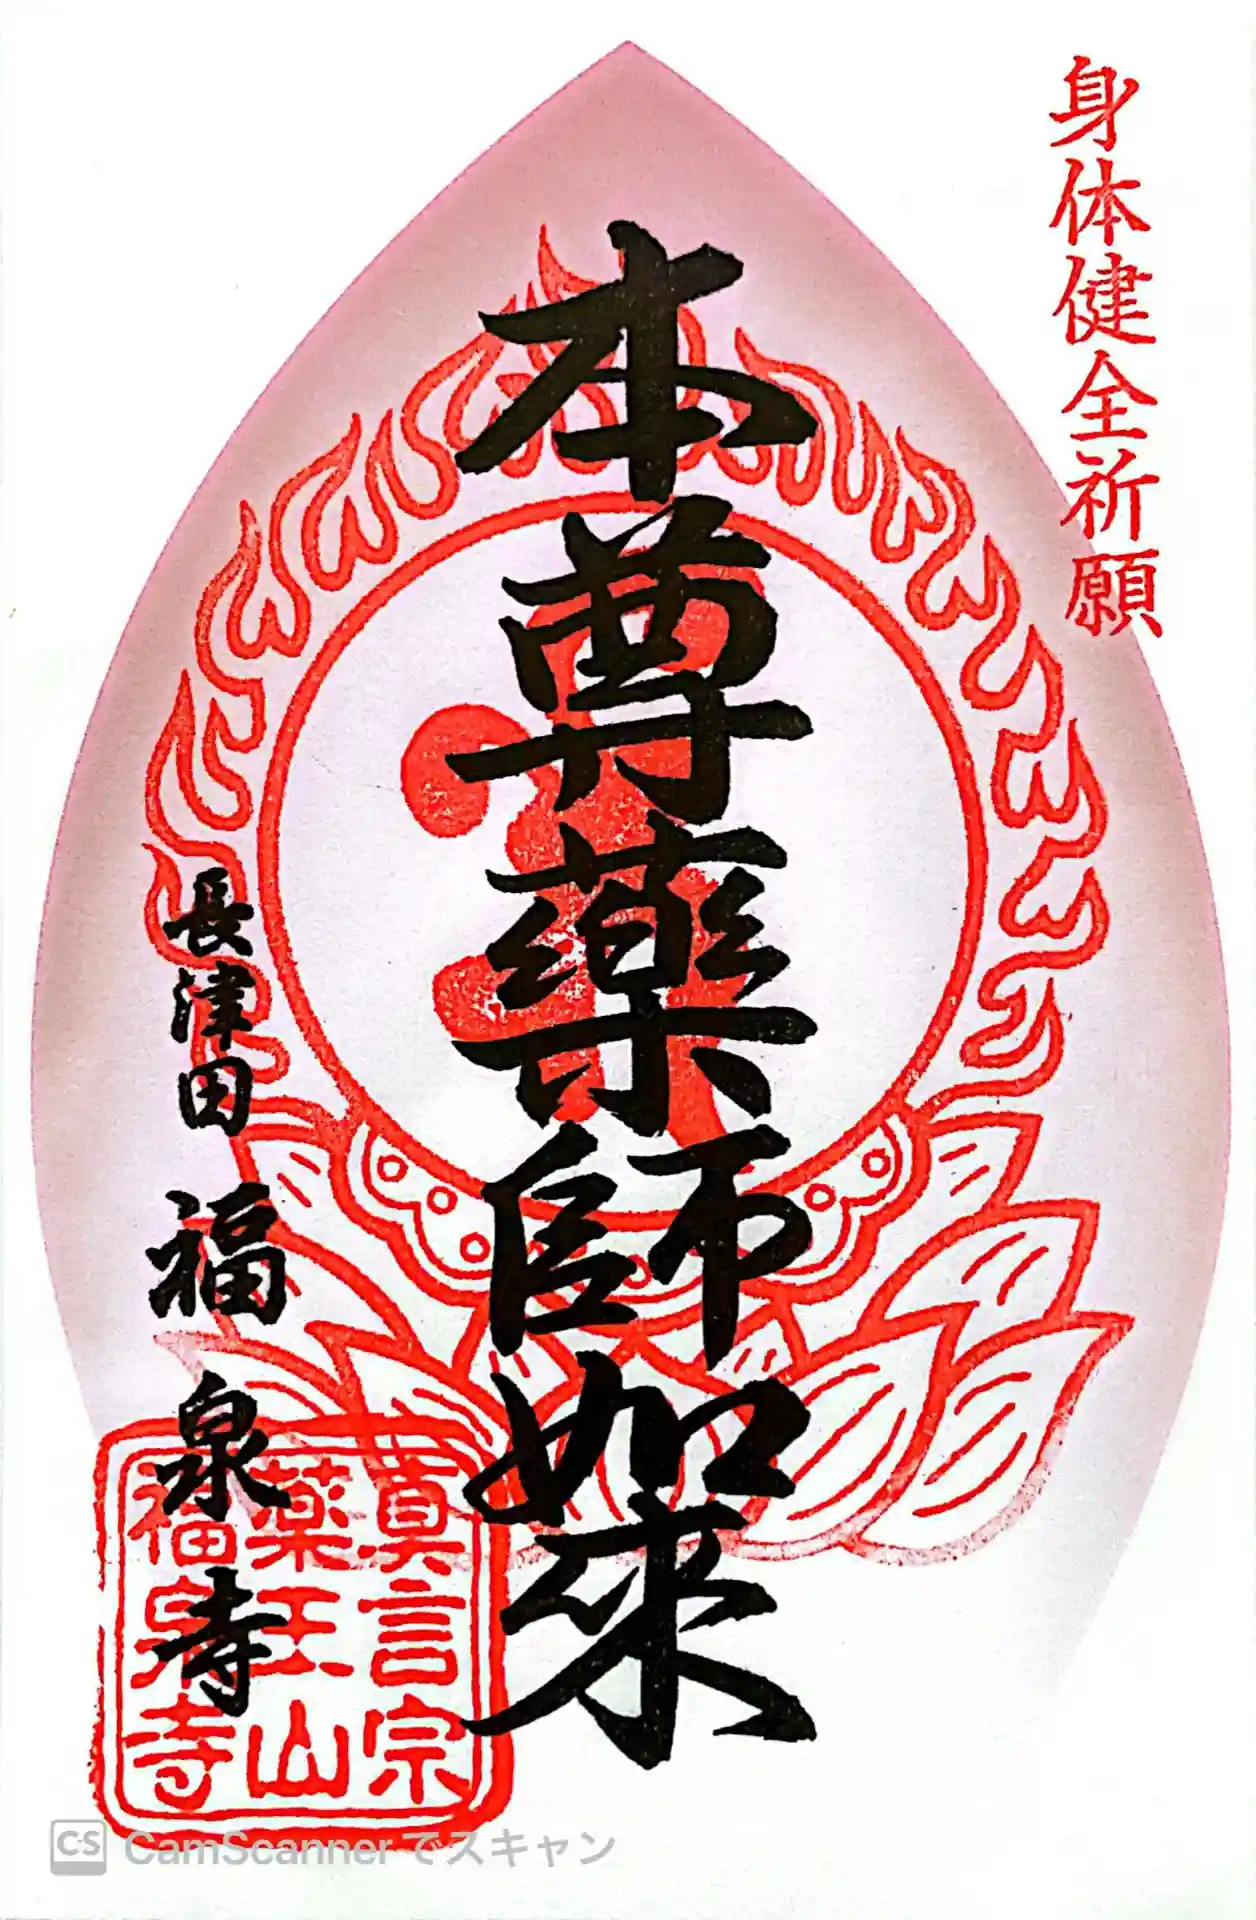 身体健全祈願
本尊薬師如来
長津田 福泉寺
真言宗
薬王山
福泉寺
CS CamScannerでスキャン